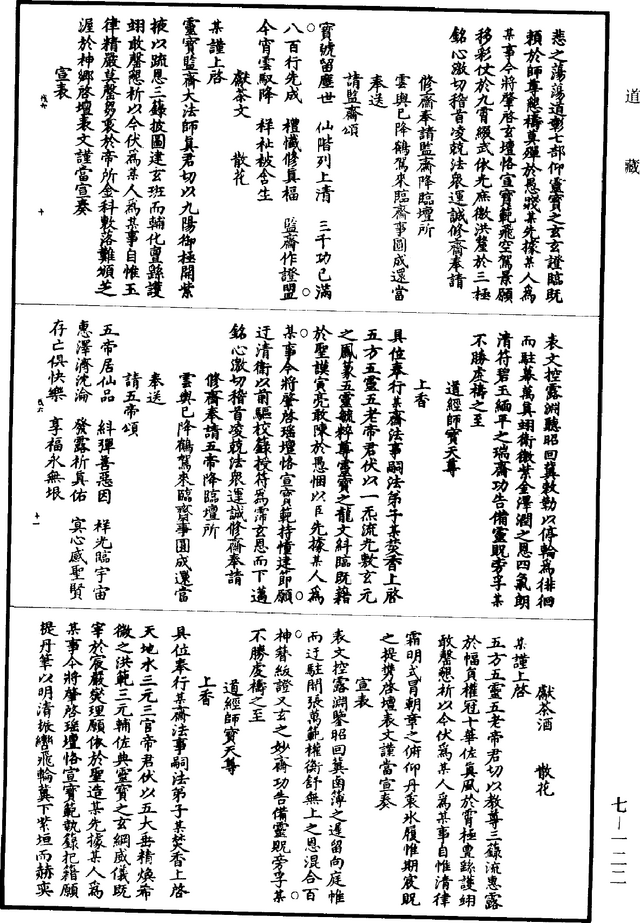 道藏
悲之蕩蕩道彰七部仰靈寶之玄玄證臨既
賴於師尊懇禱莫殫於愚戔某先據某人為
某事今將肇啓玄壇恪宣寶範飛空駕景願
移彩仗於九霄綴武依光庶徹洪釐於三極
銘心激切稽首凌兢法衆運誠修齋奉請
修齋奉請監齋降臨壇所
雲輿已降鶴駕來臨齋事圓成還當
奉送
請監齋頌
寶號留塵世　仙階列上清　三千功已滿
八百行先成　禮懺修真福　監齋作證盟
今宵雲馭降　祥祉被含生
獻茶文　散花
某謹上啓
靈寶監齋大法師真君切以九陽御極開紫
掖以疏恩三籙披圖建玄班而輔化亶繇護
翊敢罄懇祈以今伏為某人為某事自惟玉
律精嚴莫罄芻衷於帝所金科敷落難頫芝
渥於神鄉啓壇表文謹當宣奏
宣表
表文控露淵聽昭回冀敕勒以停輪為徘徊
而駐蓋萬真翊衛徽紫金澤潤之恩四氣朗
清符碧玉緬平之瑞齋功告備靈貺旁孚某
不勝虔禱之至
道經師寶天尊
上香
具位奉行某齋法事嗣法弟子某焚香上啓
五方五靈五老帝君伏以一炁流光敷玄元
之鳳篆五靈毓粹尊靈寶之龍文糾臨既籍
於聖謨寅亮敢陳於愚悃以臣先據某人為
某事今將肇啓瑤壇恪宣寶範持幢建節願
迂清衛以前驅校錄授符為霈玄恩而下邁
銘心激切稽首凌兢法衆運誠修齋奉請
修齋奉請五帝降臨壇所
雲輿已降鶴駕來臨齋事圓成還當
奉送
請五帝頌
五帝居仙品　糾彈善惡因　祥光臨宇宙
惠澤濟沈淪　發露祈真佑　寅心感聖賢
存亡俱快樂　享福永無垠
獻茶酒　散花
某謹上啓
五方五靈五老帝君切以教尊三籙流惠露
於幅員權冠十華佐真風於霄極亶繇護翊
敢罄懇祈以今伏為某人為某事自惟清律
霜明式冐朝章之俯仰丹衷氷履惟期宸貺
之提擕啓壇表文謹當宣奏
宣表
表文控露淵鑒昭回冀鹵簿之遲留向庭帷
而迂駐閶張萬範權衡舒無上之恩混合百
神替紱證又玄之妙齋功告備靈貺旁孚某
不勝虔禱之至
道經師寶天尊
上香
具位奉行某齋法事嗣法弟子某焚香上啓
天地水三元三官帝君伏以五大垂精煥希
微之洪範三元輔佐典靈寶之玄綱威儀既
宰於宸嚴爕理願依於聖造某先據某人為
某事今將肇啓瑤壇恪宣寶範執籙把籍願
提丹筆以明清振轡飛輪冀下紫垣而赫奕
七—一二二